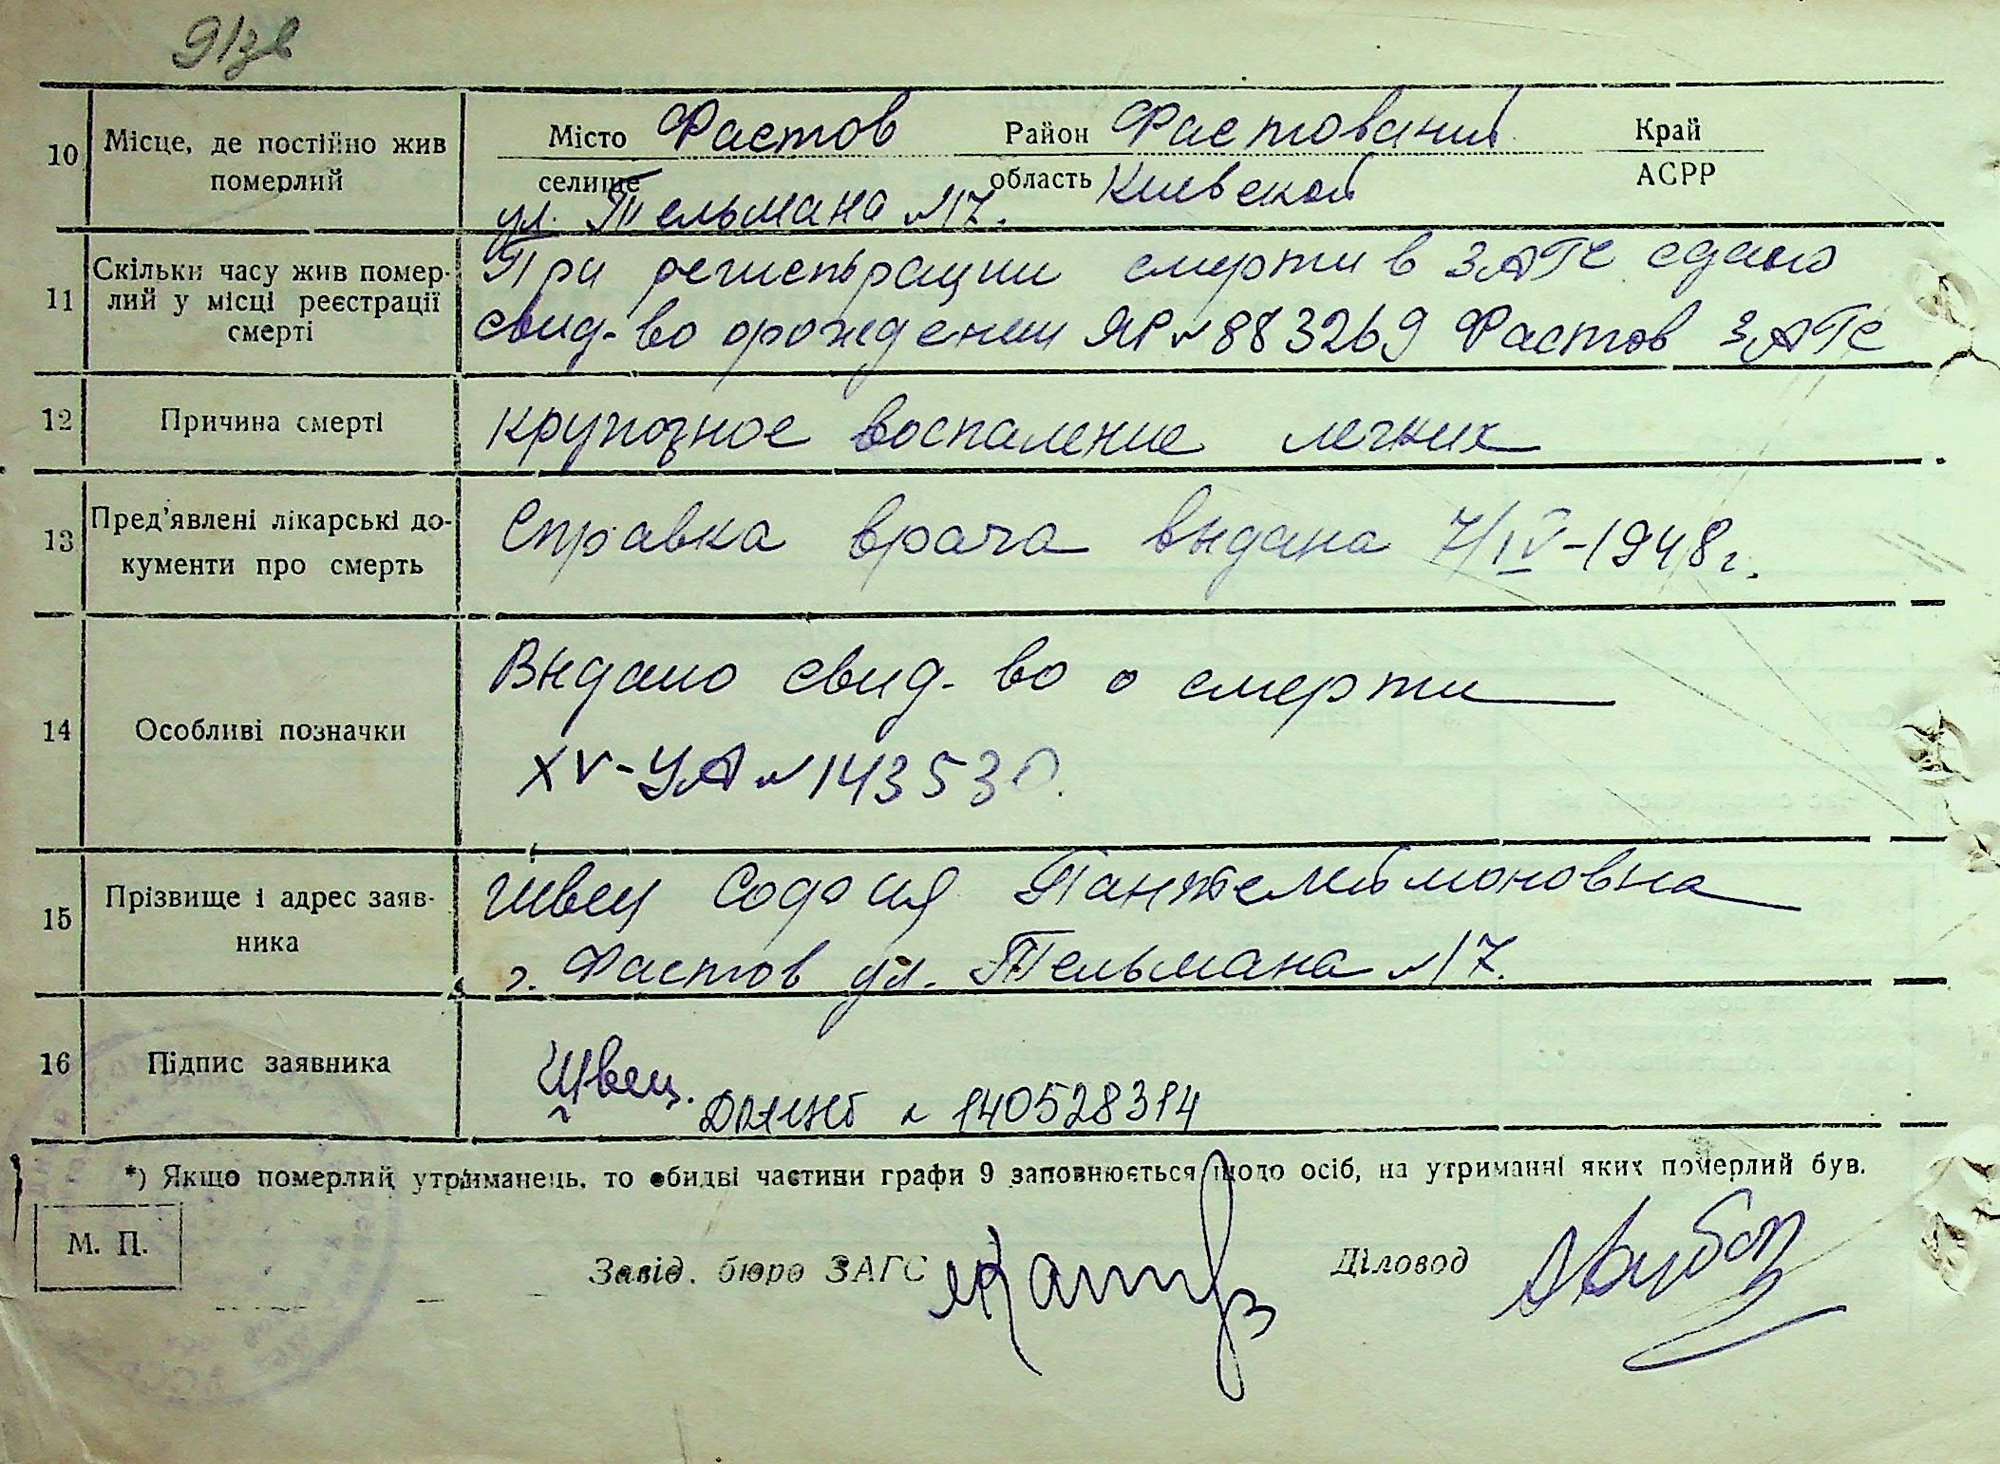 10 Місце, де постійно жив померлий
Місто Фастов Район Фастовский Край
селище область Киевской АСРР
ул. Тельмана №17.
11 Скільки часу жив помер-
лий у місці реєстрації
смерті
При регистрации смерти в ЗАГС сдано
свид-во орождении ЯР №883269 Фастов ЗАГС
12 Причина смерті
Крупозное воспаление легких
13 Пред'явлені лікарські до-
кументи про смерть
Справка врача выдана 7/IV-1948г.
14 Особливі позначки
Выдано свид-во о смерти
XV-УА №143530.
15 Прізвище і адрес заяв-
ника
Швец София Пантелеймоновна
г. Фастов ул. Тельмана №17.
16 Підпис заявника
Швец.
№ 140528314
*) Якщо померлий утриманець, то обидві частини графи 9 заповнюється щодо осіб, на утриманні яких померлий був.
М. П.
Завід. бюро ЗАГС
Діловод